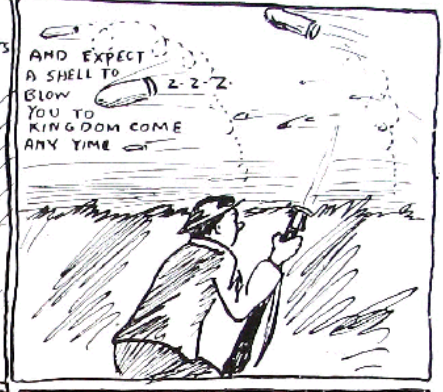 AND EXPECT
A SHELL TO
BLOW
YOU TO
KINGDOM COME
ANY TIME
Z-Z-Z-